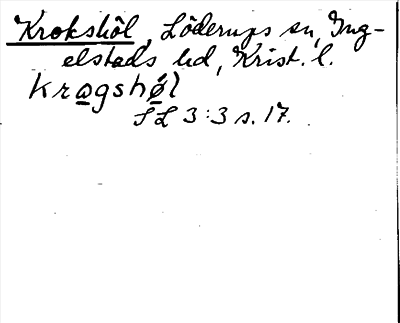 Krokshöl, Löderups sn, Ing-
elstads hd, Krist. l.
krogshøl
SL 3:3 s. 17.